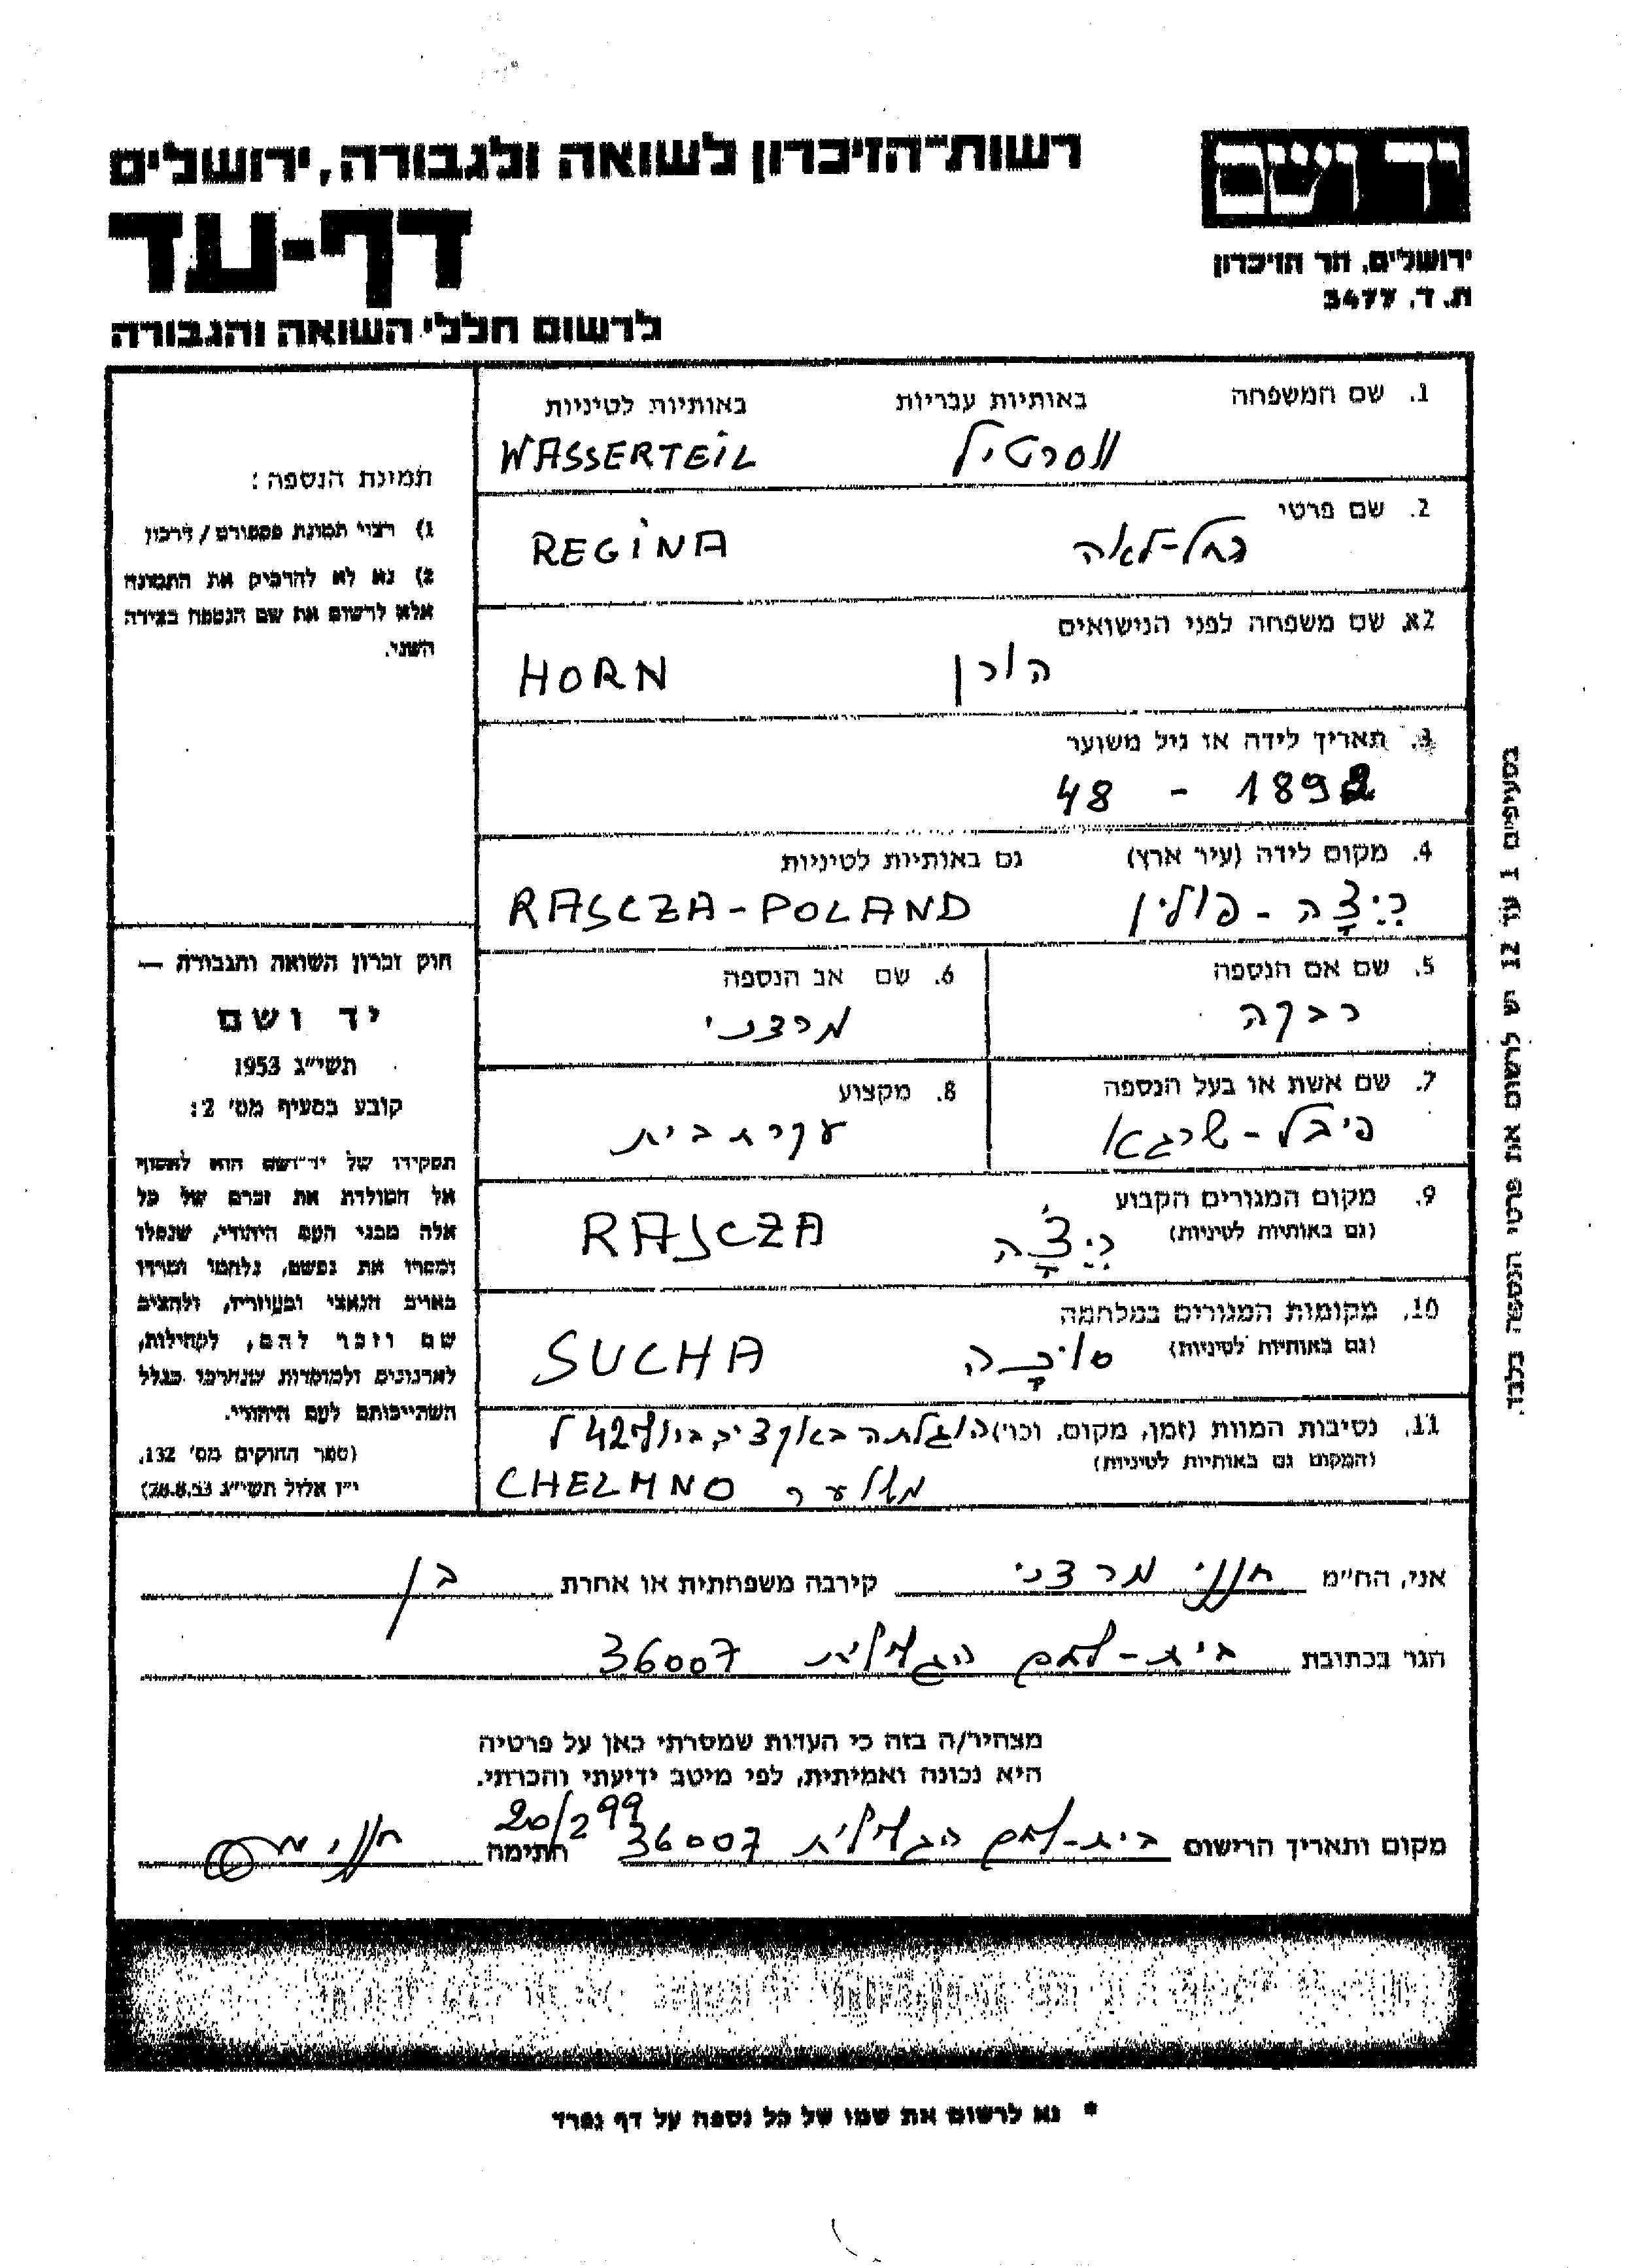 יד ושם
רשות־הזיכרון לשואה ולגבורה, ירושלים
דף-עד
לרשום חללי השואה והגבורה
ירושלים, הר הזיכרון
ת. ד. 3477
1. שם המשפחה באותיות עבריות באותיות לטיניות
ווסרטיל WASSERTEIL
2. שם פרטי
רחל-לאה REGINA
2א. שם משפחה לפני הנישואים
הורן HORN
3. תאריך לידה או גיל משוער
1892 - 48
4. מקום לידה (עיר ארץ) גם באותיות לטיניות
רייצה - פולין RAJCZA-POLAND
5. שם אם הנספה
רבקה
6. שם אב הנספה
מרצני
7. שם אשת או בעל הנספה
פיבל-שרגא
8. מקצוע
עקרת בית
9. מקום המגורים הקבוע
(גם באותיות לטיניות)
רייצ'ה RAJCZA
10. מקומות המגורים במלחמה
(גם באותיות לטיניות)
סוכה SUCHA
11. נסיבות המוות (זמן, מקום, וכו') הוגלתה באקציה ביולי 42 ל
(המקום גם באותיות לטיניות)
CHELMNO
תמונת הנספה:
1) רצוי תמונת פספורט / דרכון
2) נא לא להדביק את התמונה
אלא לרשום את שם הנספה בצידה
השני.
חוק זכרון השואה והגבורה —
יד ושם
תשי״ג 1953
קובע בסעיף מס' 2:
תפקידו של יד־ושם הוא לאסוף
אל המולדת את זכרם של כל
אלה מבני העם היהודי, שנפלו
ומסרו את נפשם, נלחמו ומרדו
באויב הנאצי ובעוזריו, ולהציב
שם וזכר להם, לקהילות,
לארגונים ולמוסדות שנחרבו בגלל
השתייכותם לעם היהודי.
(ספר החוקים מס' 132,
י״ז אלול תשי״ג 28.8.53)
בסעיפים 1 עד 12 יש לרשום את פרטי הנספה בלבד.
אני, הח״מ חנני מרצני קירבה משפחתית או אחרת בן
הגר בכתובת בית-לחם הגלילית 36007
מצהיר/ה בזה כי העדות שמסרתי כאן על פרטיה
היא נכונה ואמיתית, לפי מיטב ידיעתי והכרתי.
מקום ותאריך הרישום בית-לחם הגלילית 36007 20/2 99 חתימה חנני מ
* נא לרשום את שמו של כל נספה על דף נפרד